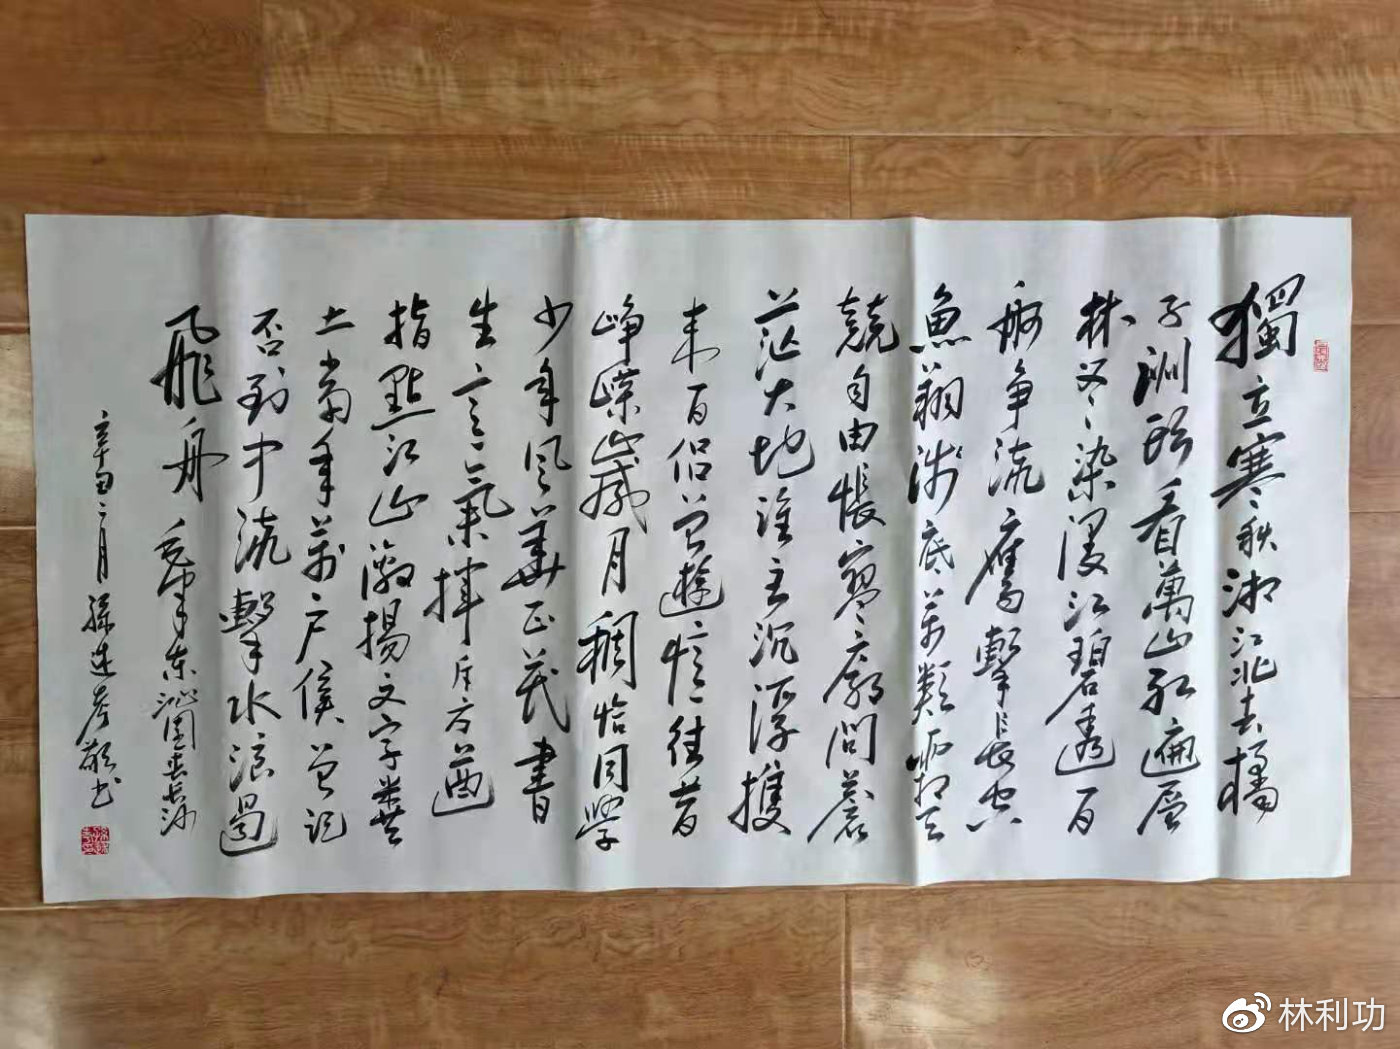 獨立寒秋湘江北去橘
子洲頭看萬山紅遍層
林尽染漫江碧透百
舸争流鷹擊長空
魚翔浅底万類霜天
競自由悵寥廓問蒼
茫大地誰主沉浮攜
来百侣曾遊憶往昔
峥嵘歲月稠恰同學
少年风華正茂書
生意氣揮斥方遒
指點江山激揚文字糞
土當年万户侯曾记
否到中流擊水浪遏
飛舟 毛澤东沁園春長沙
二月 书
林利功